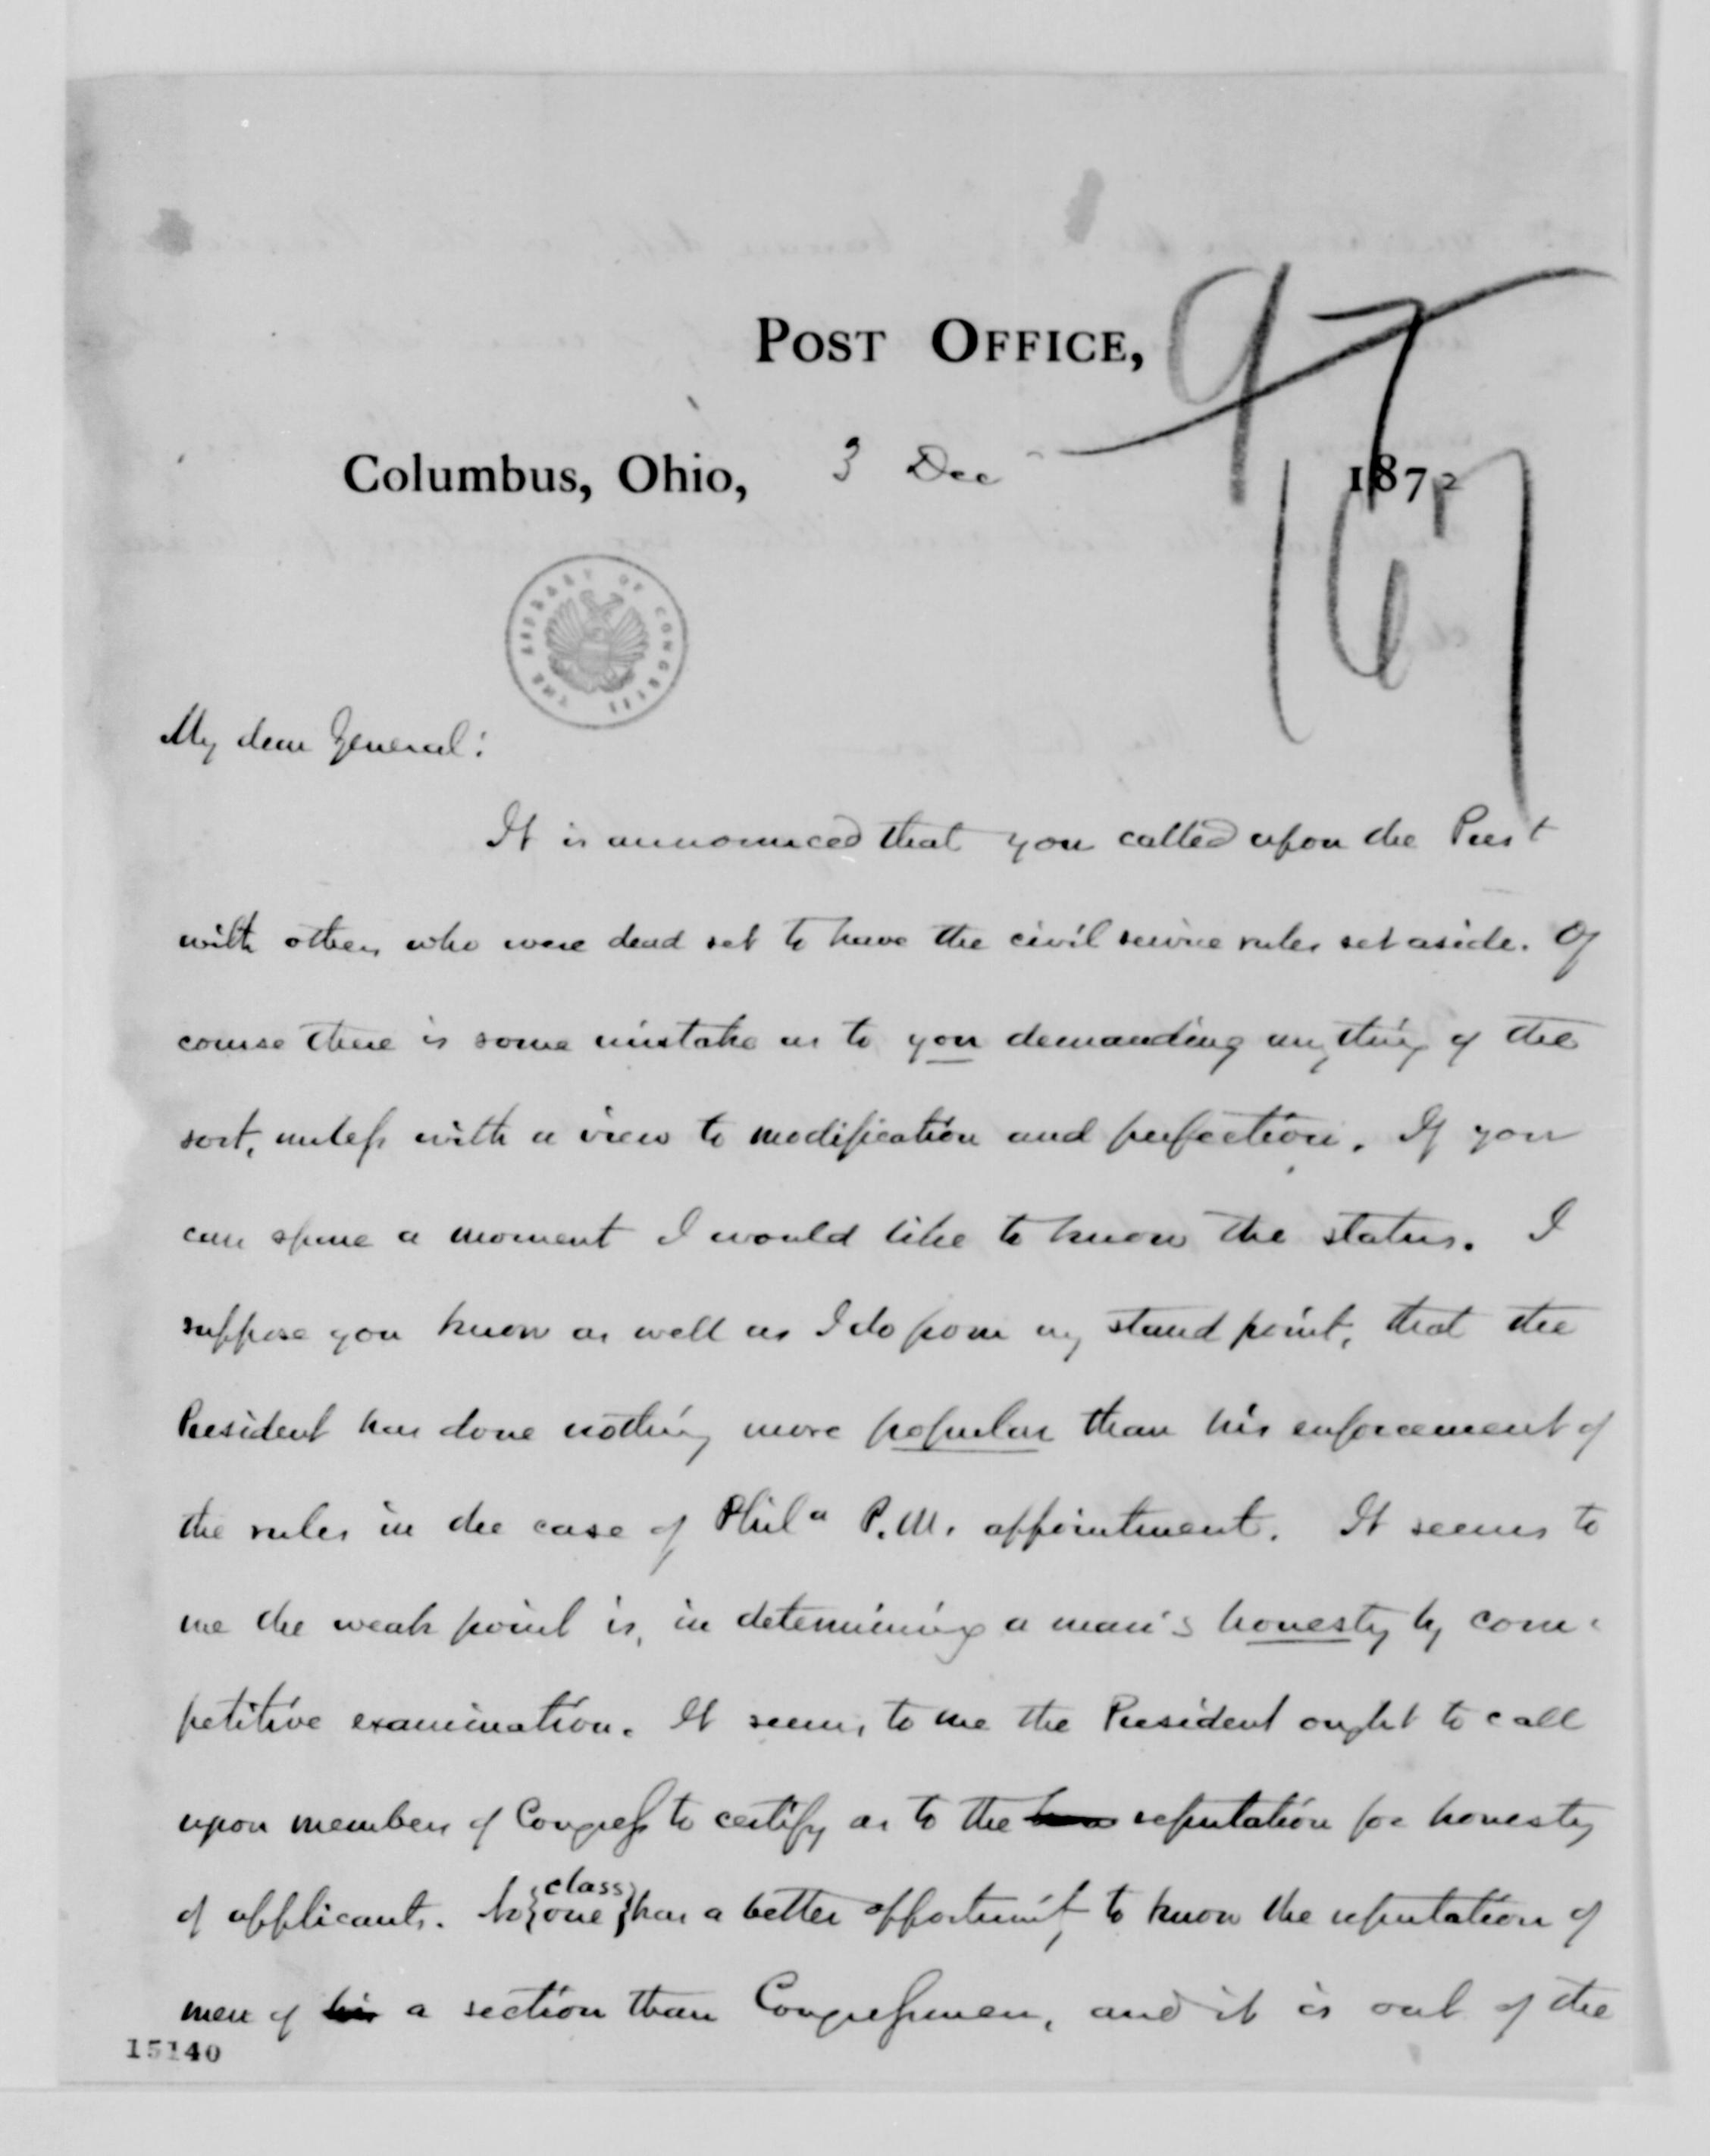 POST OFFICE,
97
Columbus, Ohio, 3 Dec 1872
167
THE LIBRARY OF CONGRESS
My dear General:
It is announced that you called upon the Prest
with others who were dead set to have the civil service rules set aside. Of
course there is some mistake as to you demanding anything of the
sort, unless with a view to modification and perfection. If you
can spare a moment I would like to know the status. I
suppose you know as well as I do from my stand point, that the
President has done nothing more popular than his enforcement of
the rules in the case of Phila P.M. appointment. It seems to
me the weak point is, in determining a man's honesty by com-
petitive examination. It seems to me the President ought to call
upon members of Congress to certify as to the reputation for honesty
of applicants. No {one} class has a better opportunity to know the reputation of
men of his a section than Congressmen, and it is out of the
15140